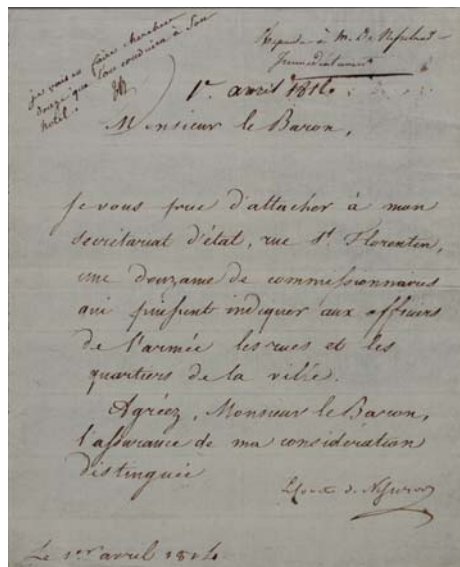 je vais en faire chercher
douze que l'on conduira à Son
hotel.
Repondre à M. De Nesselrode
Immediatement
1er avril 1814.
Monsieur le Baron,
Je vous prie d'attacher à mon
secrétariat d'état, rue St. Florentin,
une douzaine de commissionnaires
qui puissent indiquer aux officiers
de l'armée les rues et les
quartiers de la ville.
Agréez, Monsieur le Baron,
l'assurance de ma considération
distinguée
de
Le 1er avril 1814